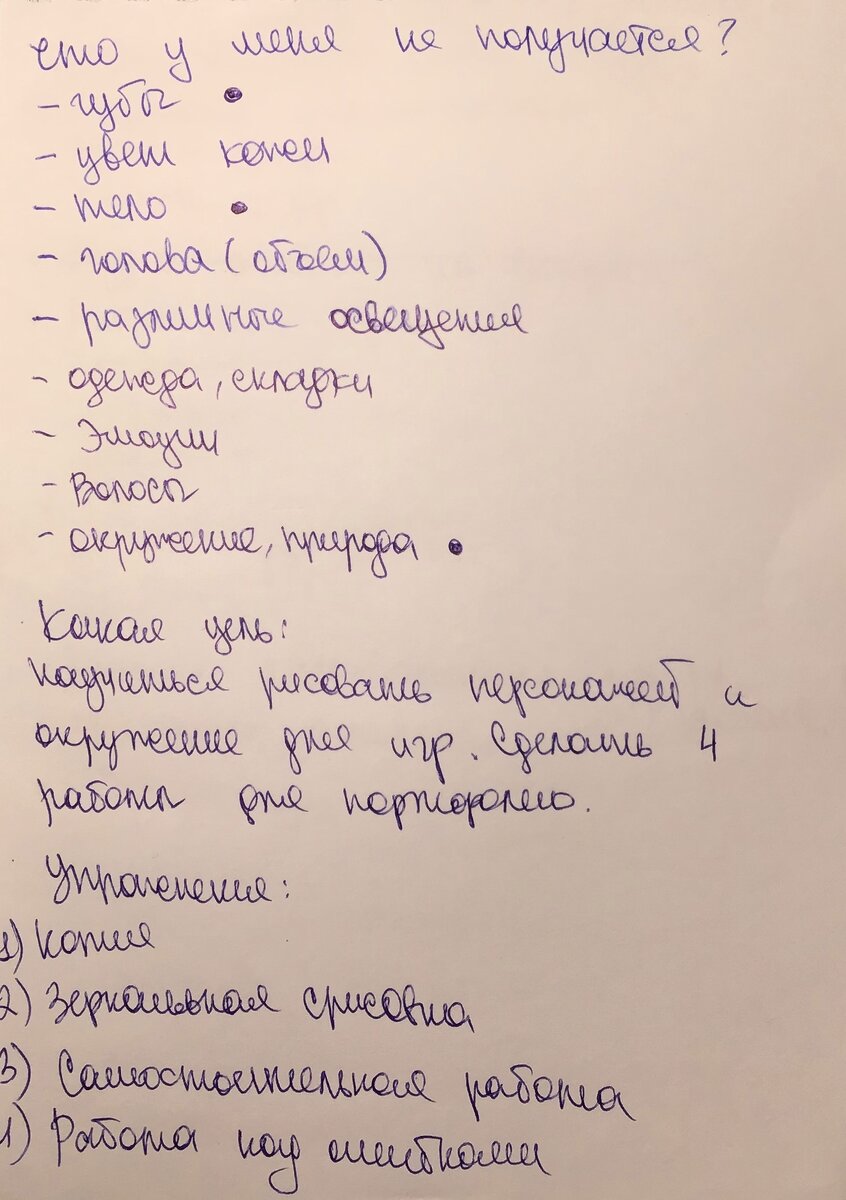 Что у меня не получается?
- губы •
- цвет кожи
- тело •
- голова (объем)
- различные освещения
- одежда, складки
- Эмоции
- Волосы
- окружение, природа •
Какая цель:
научиться рисовать персонажей и
окружение для игр. Сделать 4
работы для портфолио.
Упражнения:
1) Копия
2) Зеркальная срисовка
3) Самостоятельная работа
4) Работа над ошибками